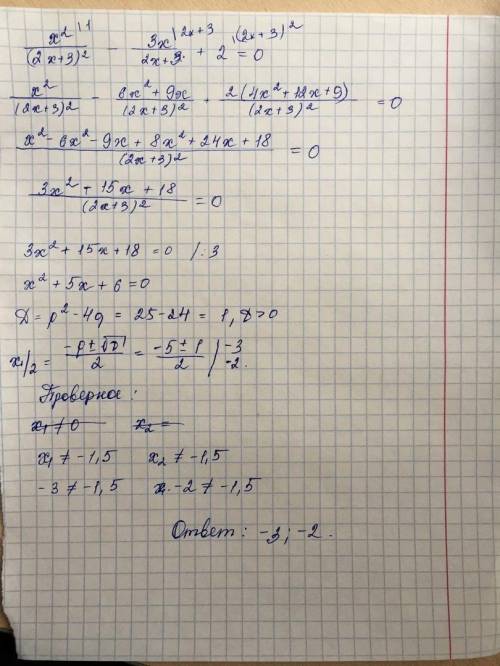 x² |1 / (2x+3)² - 3x |2x+3 / 2x+3 + 2 |(2x+3)² = 0
x² / (2x+3)² - 6x² + 9x / (2x+3)² + 2(4x²+12x+9) / (2x+3)² = 0
x² - 6x² - 9x + 8x² + 24x + 18 / (2x+3)² = 0
3x² + 15x + 18 / (2x+3)² = 0
3x² + 15x + 18 = 0 /:3
x² + 5x + 6 = 0
D = p² - 4q = 25 - 24 = 1, D > 0
x1/2 = -p ± √D / 2 = -5 ± 1 / 2 / -3 -2.
Проверка:
x₁ ≠ 0 x₂ =
x₁ ≠ -1,5 x₂ ≠ -1,5
-3 ≠ -1,5 -2 ≠ -1,5
Ответ: -3; -2.